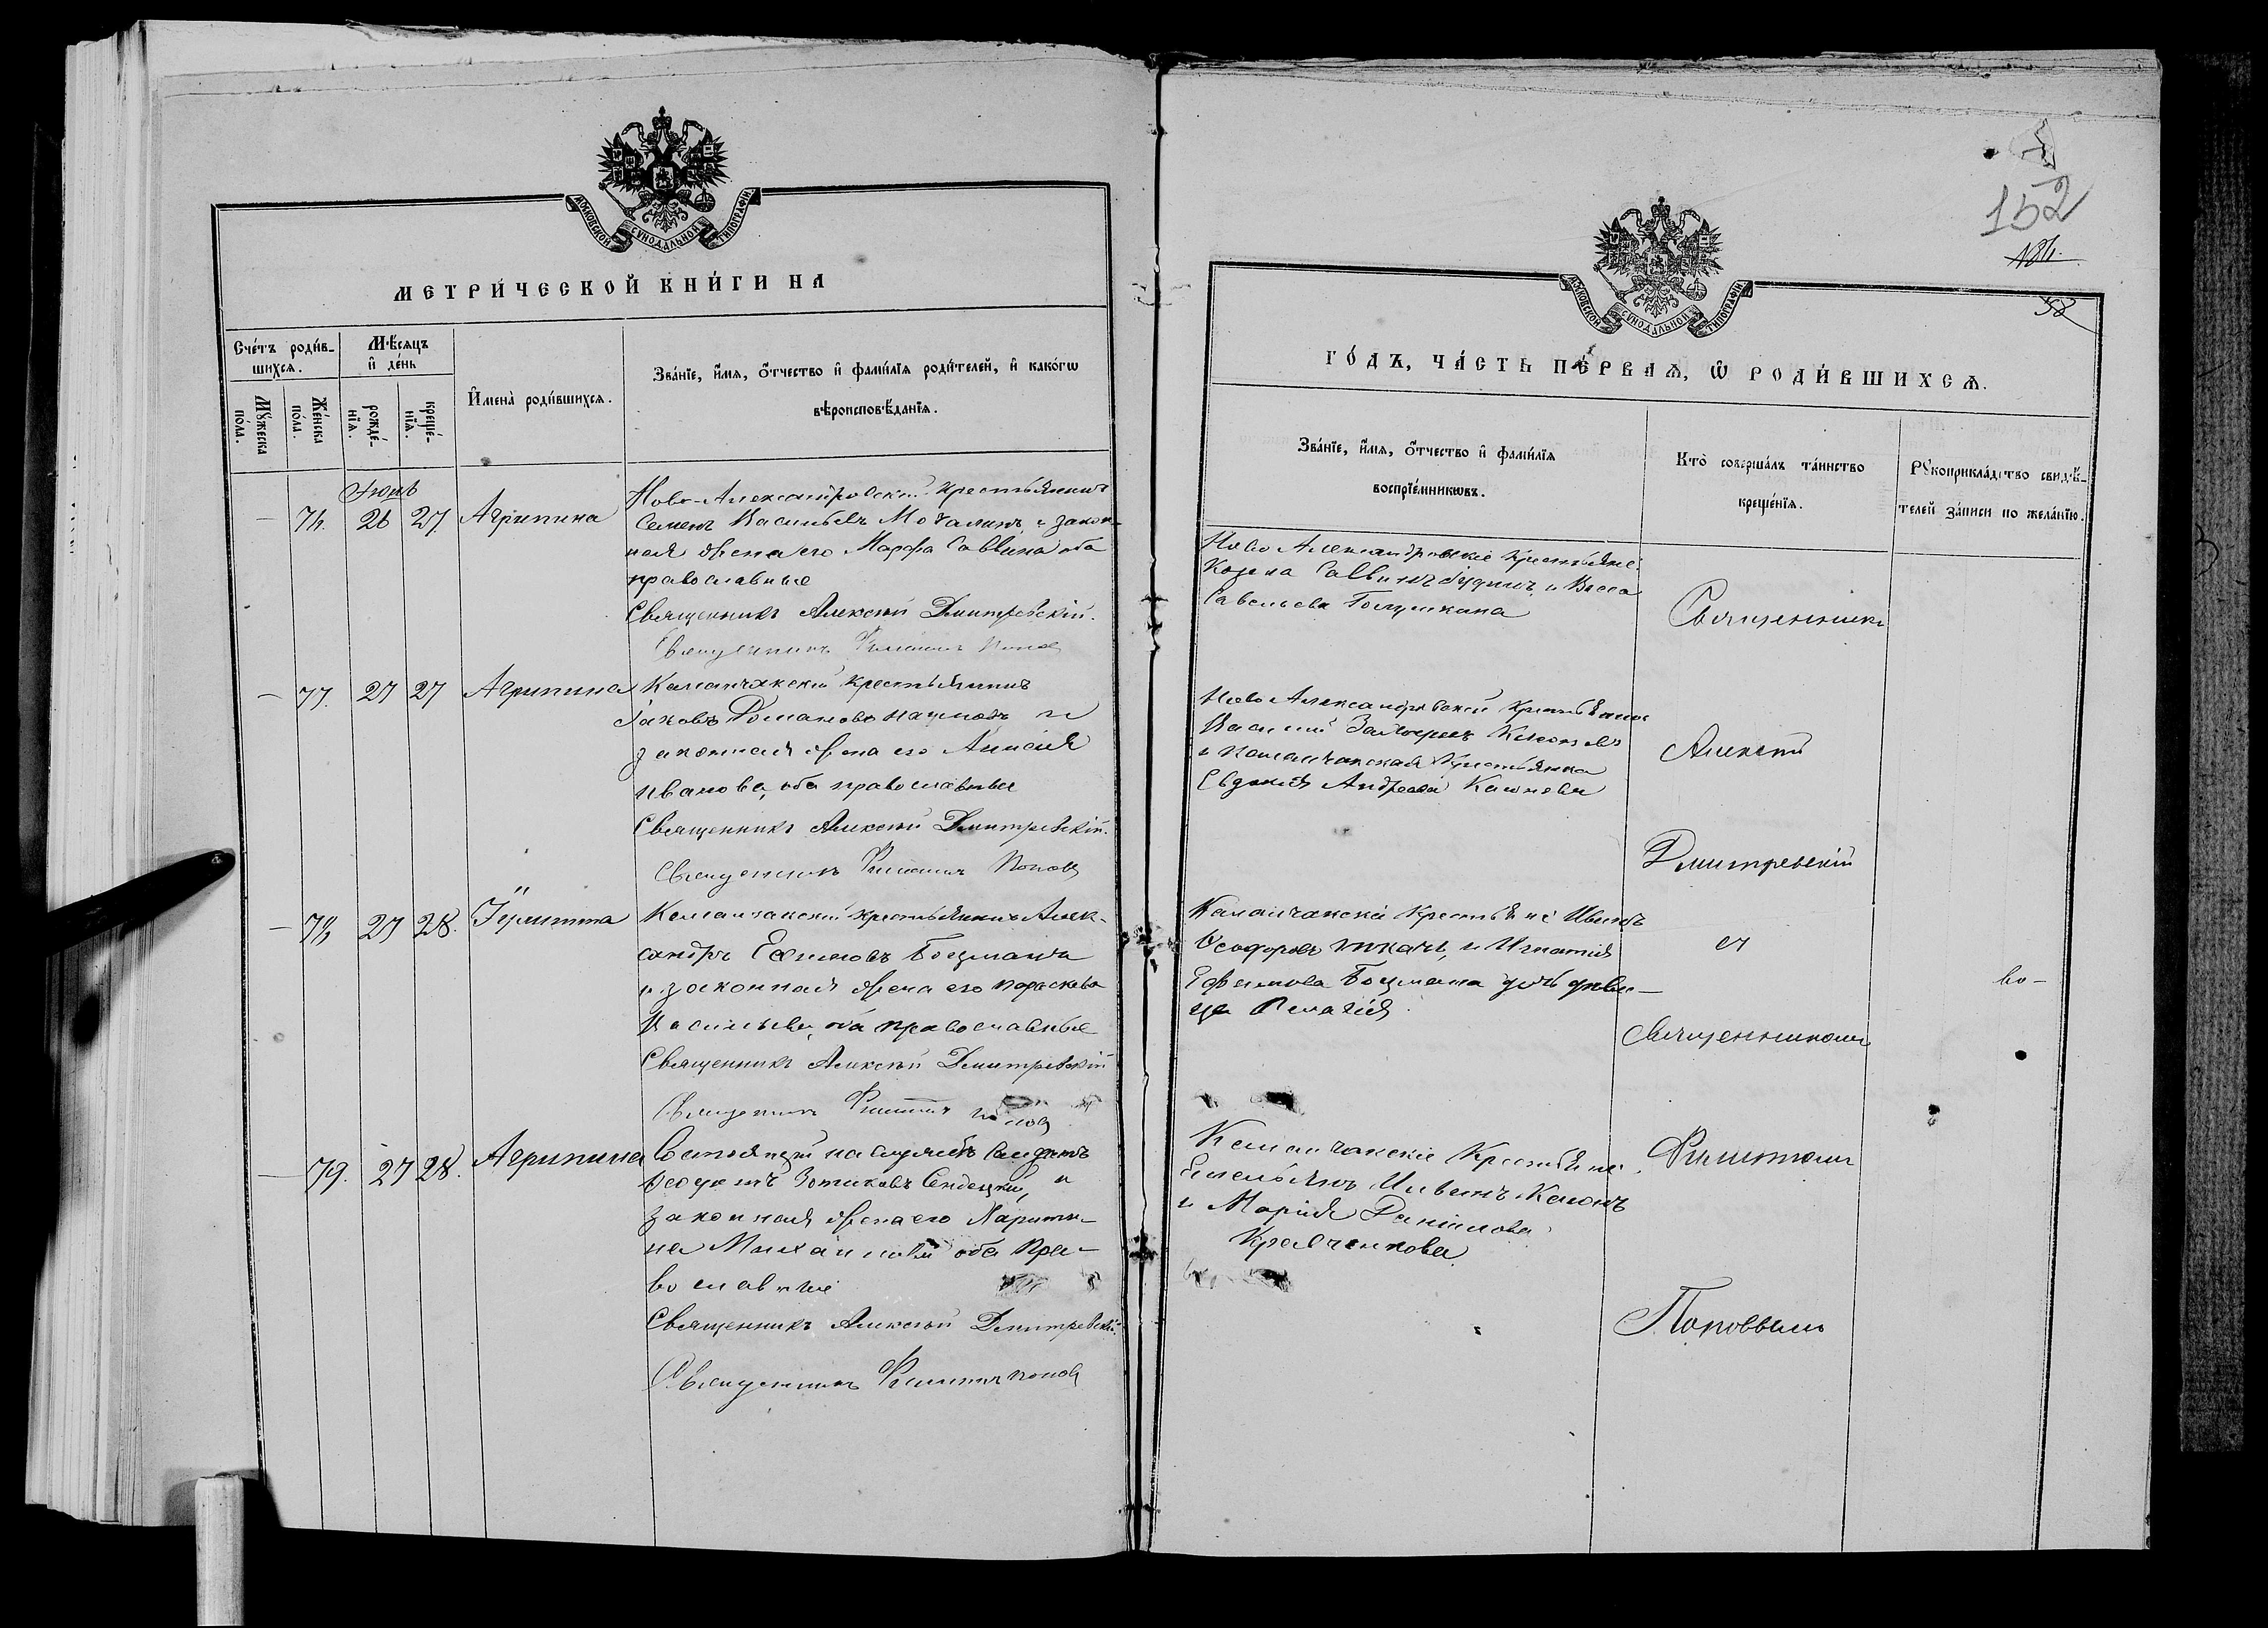 МОСКОВСКОЙ СѴНОДАЛЬНОЙ ТИПОГРАФІИ.
МЕТРИ́ЧЕСКОЙ КНИ́ГИ НА
Сче́тъ роди́в-
шихся.
Мѣ́сяцъ
и де́нь
Мꙋ́жеска
по́ла.
Же́нска
по́ла.
рожде́-
нїѧ.
креще́-
нїѧ.
Имена̀ роди́вшихся.
Зва́нїе, и́мѧ, ѻ́тчество и фами́лїѧ роди́телей, и како́гѡ
вѣроисповѣ́данїѧ.
Іюнь
— 76. 26 27. Агрипина
Ново-Александровскій крестьянинъ
Семенъ Васильевъ и закон-
ная жена его Марфа Саввина оба
православные
Священникъ Алексѣй Дмитревскій.
Священникъ Филиппъ Поповъ
— 77. 27 27 Агрипина
Каланчакскій крестьянинъ
Яковъ Романовъ Наумовъ и
законная жена его
Иванова, оба православные
Священникъ Алексѣй Дмитревскій.
Священникъ Филиппъ Поповъ
— 78 27 28. Іулитта
Каланчакскій крестьянинъ Алек-
сандръ Ефимовъ Боцманъ
и законная жена его Параскева
Васильева, оба православные
Священникъ Алексѣй Дмитревскій
Священникъ Филиппъ Поповъ
— 79. 27 28. Агрипина
Состоящій на службѣ
Зотиковъ и
законная жена его Харити-
на Михайлова оба пра-
вославные
Священникъ Алексѣй Дмитревскій.
Священникъ Филиппъ Поповъ
152
58
МОСКОВСКОЙ СѴНОДАЛЬНОЙ ТИПОГРАФІИ.
ГО́ДЪ, ЧА́СТЬ ПЕ́РВАѦ, Ѡ РОДИ́ВШИХСѦ.
Зва́нїе, и́мѧ, ѻ́тчество и фами́лїѧ
воспрїе́мникѡвъ.
Кто̀ соверша́лъ та́инство
креще́нїѧ.
Рꙋкоприкла́дство свидѣ́-
телей за́писи по жела́нїю.
Ново Александровскіе крестьяне
Козьма Саввинъ и Васса
Савельева
Священникъ
Ново Александровскій крестьянинъ
Василій
и Каланчакская крестьянка
Евдокія Андреева
Алексѣй
Дмитревскій
Каланчакскіе крестьяне Иванъ
Ѳеодоровъ Ткачъ, и Игнатія
Ефимова Боцмана дочь дѣви-
ца Пелагія
съ
во-
Священникомъ
Каланчакскіе крестьяне
Емельянъ
и Марія Даніилова
Кравченкова.
Филиппомъ
Поповымъ